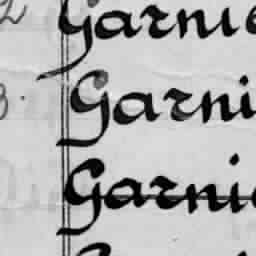 2 Garnie
3. Garni
Garnie